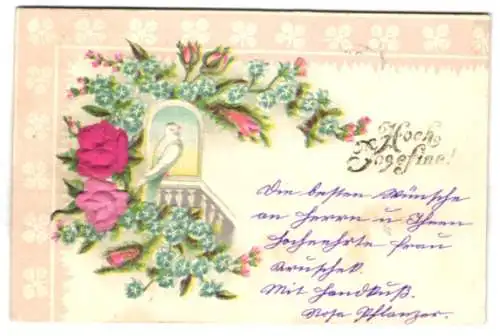 Hoch
Josefine!
Die besten Wünsche
an Herrn u Ihrer
hochverehrte Frau
Kruschek.
Mit Handkuß.
Rosa Pflanzer.